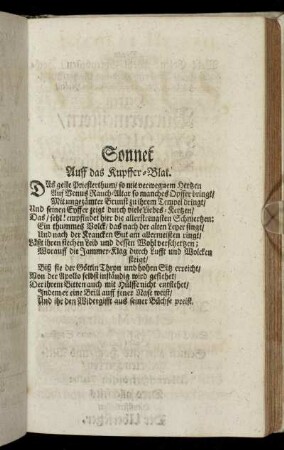 Sonnet
Auff das Kupffer-Blat.
DAs geile Priesterthum/ so mit verwegnem Hertzen
Auf Venus Rauch-Altar so manches Opffer bringt/
Mit ungezämter Brunst zu ihrem Tempel dringt/
Und seinen Eyffer zeigt durch viele Liebes-Kertzen/
Das/ seht! empfindet hier die allerstrengsten Schmertzen:
Ein thummes Volck/ das nach der alten Leyer singt/
Und nach der Krancken Gut am allermeisten ringt/
Läst ihren siechen Leib und dessen Wohl verschertzen;
Worauff die Jammer-Klag durch Lufft und Wolcken
steigt/
Biß sie der Göttin Thron und hohen Sitz erreicht/
Von der Apollo selbst inständig wird geflehet:
Der ihrem Bitten auch mit Hülffe nicht entstehet/
Indem er eine Brill auff jener Nase weist/
Und ihr den Widergifft aus seiner Büchse preist.